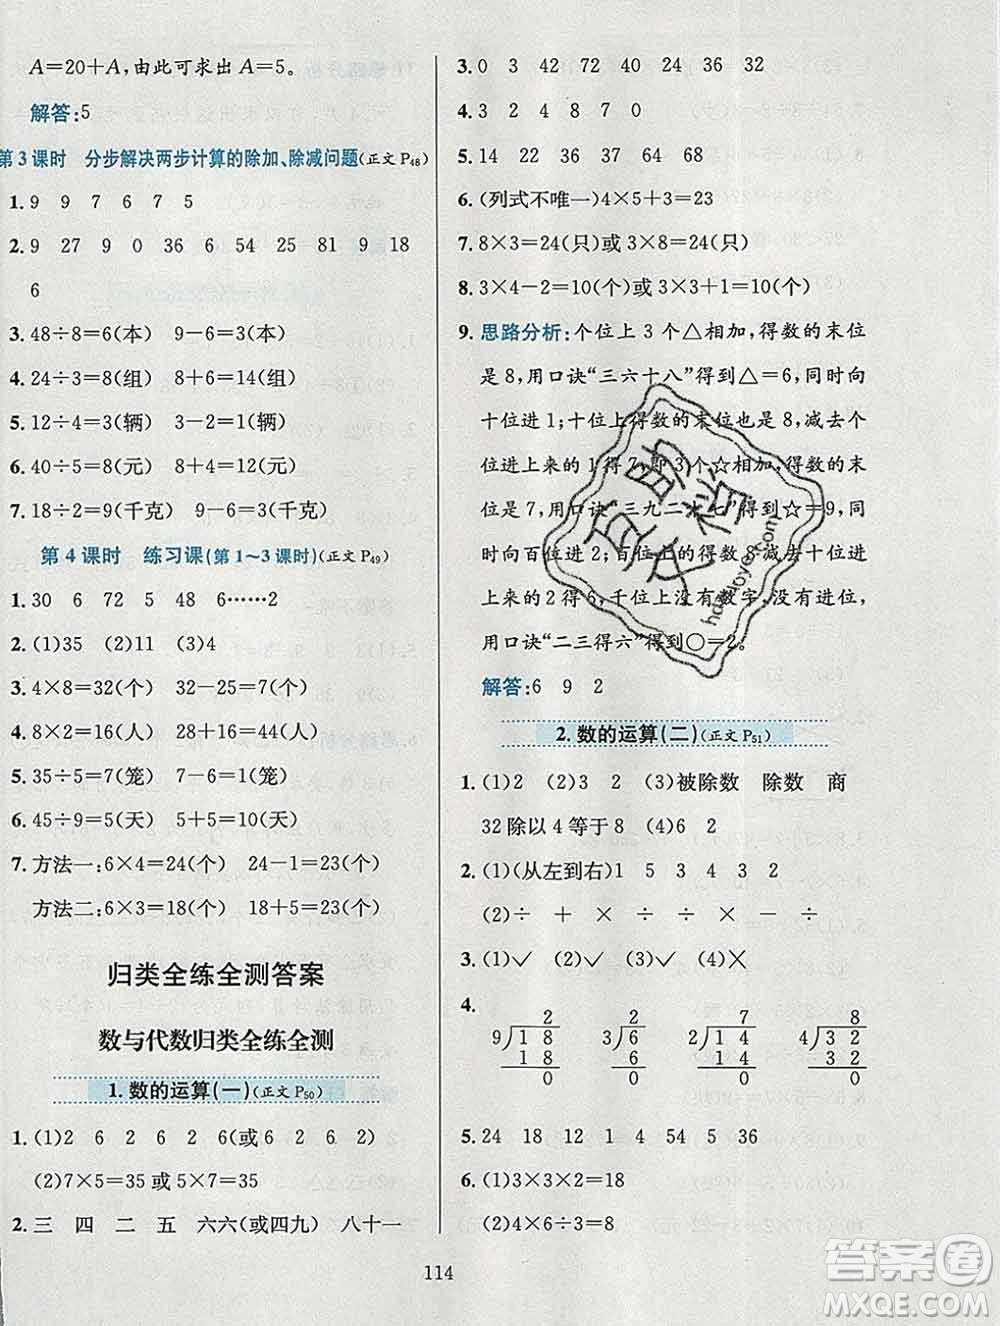 A=20+A,由此可求出A=5。
解答:5
第3课时 分步解决两步计算的除加、除减问题(正文P48)
1. 9 9 7 6 7 5
2. 9 27 9 0 36 6 54 25 81 9 18
6
3. 48÷8=6(本) 9-6=3(本)
4. 24÷3=8(组) 8+6=14(组)
5. 12÷4=3(辆) 3-2=1(辆)
6. 40÷5=8(元) 8+4=12(元)
7. 18÷2=9(千克) 9-6=3(千克)
第4课时 练习课(第1~3课时)(正文P49)
1. 30 6 72 5 48 6……2
2. (1)35 (2)11 (3)4
3. 4×8=32(个) 32-16=16(个)
4. 8×2=16(人) 28+16=44(人)
5. 35÷5=7(笼) 7-6=1(笼)
6. 45÷9=5(天) 5+5=10(天)
7. 方法一:6×4=24(个) 24-1=23(个)
方法二:6×3=18(个) 18+5=23(个)
归类全练全测答案
数与代数归类全练全测
1. 数的运算(一)(正文P50)
1. (1)2 6 2 6 2 6(或6 2 6 2)
(2)7×5=35或5×7=35
2. 三 四 二 五 六六(或四九) 八十一
3. 0 3 42 40 24 36 32
4. 3 2 4 8 7 0
5. 14 22 16 36 68
6. (列式不唯一)4×5+3=23
7. 8×3=24(只)或3×8=24(只)
8. 3×4-2=10(个)或3×3+1=10(个)
9. 思路分析:个位上3个△相加,得数的末位
是8,用口诀“三六十八”得到△=6,同时向
十位进1;十位上得数的末位也是8,减去个
位进上来的1得7,即3个☆相加,得数的末
位是7,用口诀“三九二十七”得到☆=9,同
时向百位进2;百位上的得数是8,减去十位
进上来的2得6,千位上没有数字,没有进位,
用口诀“二三得六”得到○=2。
解答:6 9 2
2. 数的运算(二)(正文P51)
1. (1)2 (2)3 2 (3)被除数 除数 商
32除以4等于8 (4)6 2
2. (1)(从左到右)1 5 3 4 3 2
(2)÷ + × - × ÷
3. (1)✓ (2)✓ (3)✓ (4)×
4.
2 2 7 8
9)18 3)6 2)14 4)32
18 6 14 32
0 0 0 0
5. 24 18 12 1 4 54 5 36
6. (1)3×3×2=18
(2)4×6÷3=8
114
互助文档
hdzuoye.com
答案圈
MXQE.COM